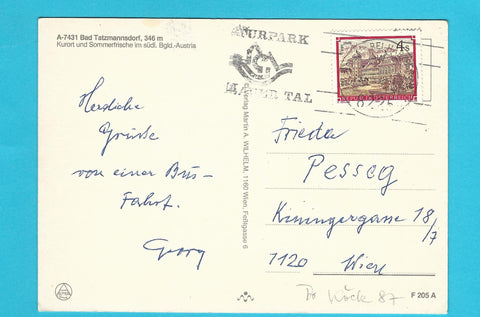 A-7431 Bad Tatzmannsdorf, 346 m
Kurort und Sommerfrische im südl. Bgld.-Austria
Herzliche
Grüsse
von einer Bus-
Fahrt.
Georg
Verlag Martin A. WILHELM, 1160 Wien,
URPARK
TAL
4s
REPUBLIK ÖSTERREICH
Frieda
Kiningergasse 18/7
1120 Wien
87
F 205 A